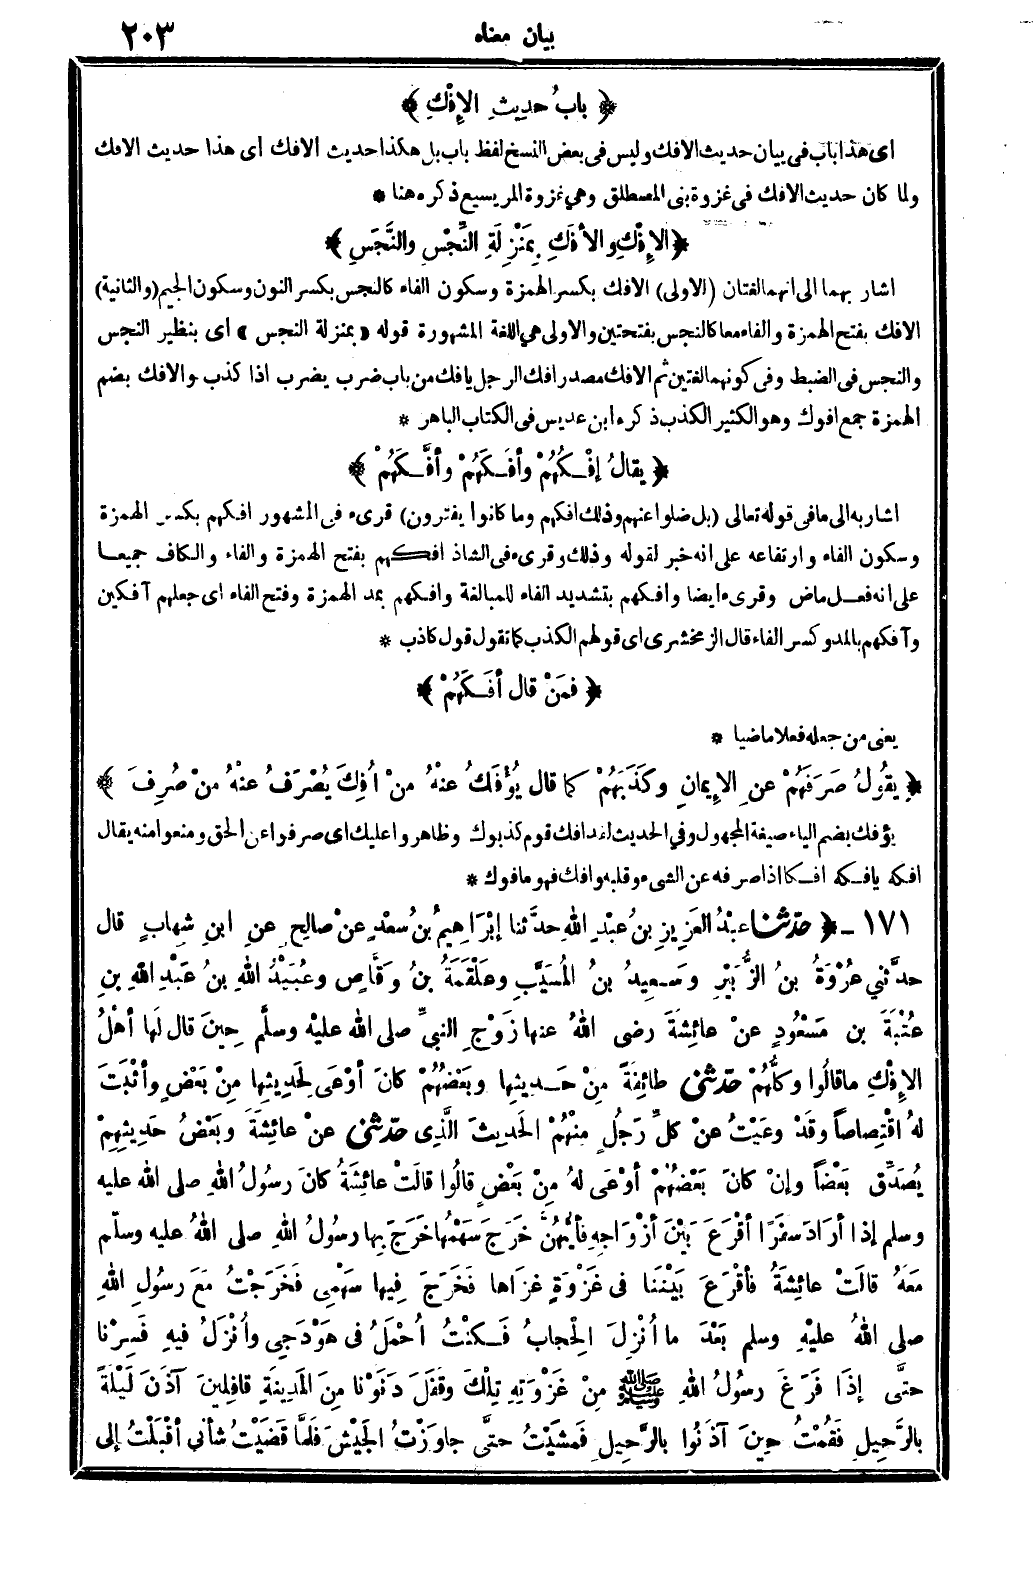 بيان معناه ٢٠٣
﴿ بابُ حديثِ الإِفْكِ ﴾
اى هذا باب فى بيان حديث الافك وليس فى بعض النسخ لفظ باب بل هكذا حديث الافك اى هذا حديث الافك
ولما كان حديث الافك فى غزوة بنى المصطلق وهى غزوة المريسيع ذكره هنا *
﴿ الإِفْكِ والأَفَكِ بِمَنْزِلَةِ النِّجْسِ والنَّجَسِ ﴾
اشار بهما الى انهما لغتان (الاولى) الافك بكسر الهمزة وسكون الفاء كالنجس بكسر النون وسكون الجيم (والثانية)
الافك بفتح الهمزة والفاء معا كالنجس بفتحتين والاولى هى اللغة المشهورة قوله «بمنزلة النجس» اى بنظير النجس
والنجس فى الضبط وفى كونهما لغتين ثم الافك مصدر افك الرجل يافك من باب ضرب يضرب اذا كذب والافك بضم
الهمزة جمع افوك وهو الكثير الكذب ذكره ابن عديس فى الكتاب الباهر *
﴿ يقالُ إفْكُهُمْ وأفَكَهُمْ وأفَّكَهُمْ ﴾
اشار به الى ما فى قوله تعالى (بل ضلوا عنهم وذلك افكهم وما كانوا يفترون) قرىء فى المشهور افكهم بكسر الهمزة
وسكون الفاء وارتفاعه على انه خبر لقوله وذلك وقرىء فى الشاذ افكهم بفتح الهمزة والفاء والكاف جميعا
على انه فعل ماض وقرىء ايضا وافكهم بتشديد الفاء للمبالغة وافكهم بمد الهمزة وفتح الفاء اى جعلهم آفكين
وآفكهم بالمد وكسر الفاء قال الزمخشرى اى قولهم الكذب كما تقول قول كاذب *
﴿ فمَنْ قال أفَكَهُمْ ﴾
يعنى من جعله فعلا ماضيا *
﴿ يقُولُ صَرَفَهُمْ عنِ الإِيمانِ وكَذَبَهُمْ كما قال يُؤْفَكُ عنْهُ منْ أُفِكَ يُصْرَفُ عنْهُ منْ صُرِفَ ﴾
يؤفك بضم الياء صيغة المجهول وفى الحديث لقد افك قوم كذبوك وظاهروا عليك اى صرفوا عن الحق ومنعوا منه يقال
افكه يافكه افكا اذا صرفه عن الشىء وقلبه وافك فهو مافوك *
١٧١ ـ ﴿ حَدَّثنا عبْدُ العَزِيزِ بنُ عبْدِ اللهِ حدَّثنا إبْرَاهِيمُ بنُ سعْدٍ عنْ صالِحٍ عنِ ابنِ شِهابٍ قال
حدَّثني عُرْوَةُ بنُ الزُّبَيْرِ وسَعِيدُ بنُ المُسَيَّبِ وعَلْقَمَةُ بنُ وَقَّاصٍ وعُبَيْدُ اللهِ بنُ عَبْدِ اللهِ بنِ
عُتْبَةَ بنِ مَسْعُودٍ عنْ عائِشَةَ رضى اللهُ عنها زَوْجِ النبيِّ صلى الله عليْهِ وسلَّم حِينَ قال لَها أهْلُ
الإِفْكِ ماقالُوا وكلُّهُمْ حَدَّثَنى طائِفَةً مِنْ حَدِيثِها وبَعْضُهُمْ كانَ أوْعَى لِحَدِيثِها مِنْ بَعْضٍ وأثْبَتَ
لهُ اقْتِصاصاً وقَدْ وعَيْتُ عنْ كلِّ رَجُلٍ مِنْهُمُ الحَدِيثَ الَّذِى حَدَّثَنى عنْ عائِشَةَ وبَعْضُ حَدِيثِهِمْ
يُصَدِّقُ بَعْضاً وإنْ كانَ بَعْضُهُمْ أوْعَى لهُ مِنْ بَعْضٍ قالُوا قالَتْ عائِشَةُ كانَ رسُولُ اللهِ صلى الله عليه
وسلم إذا أرَادَ سفَرًا أقْرَعَ بَيْنَ أزْوَاجِهِ فأيُّهُنَّ خَرَجَ سَهْمُها خَرَجَ بِها رسُولُ اللهِ صلى اللهُ عليه وسلّم
مَعَهُ قالَتْ عائِشَةُ فأقْرَعَ بَيْنَنا فى غَزْوَةٍ غزَاها فَخَرَجَ فِيها سَهْمِى فَخَرَجْتُ مَعَ رسُولِ اللهِ
صلى اللهُ عليْهِ وسلم بَعْدَ ما أُنْزِلَ الحِجابُ فَكنْتُ أُحْمَلُ فى هَوْدَجِي وأُنْزَلُ فيهِ فَسِرْنا
حتَّى إذَا فَرَغَ رسُولُ اللهِ ﷺ مِنْ غَزْوَتِهِ تِلْكَ وقفَلَ دَنَوْنا مِنَ المَدِينَةِ قافِلِينَ آذَنَ لَيْلَةً
بالرَّحِيلِ فَقُمْتُ حِينَ آذَنُوا بالرَّحِيلِ فَمشَيْتُ حتَّى جاوَزْتُ الجَيْشَ فلَمَّا قضَيْتُ شأنى أقْبَلْتُ إلى